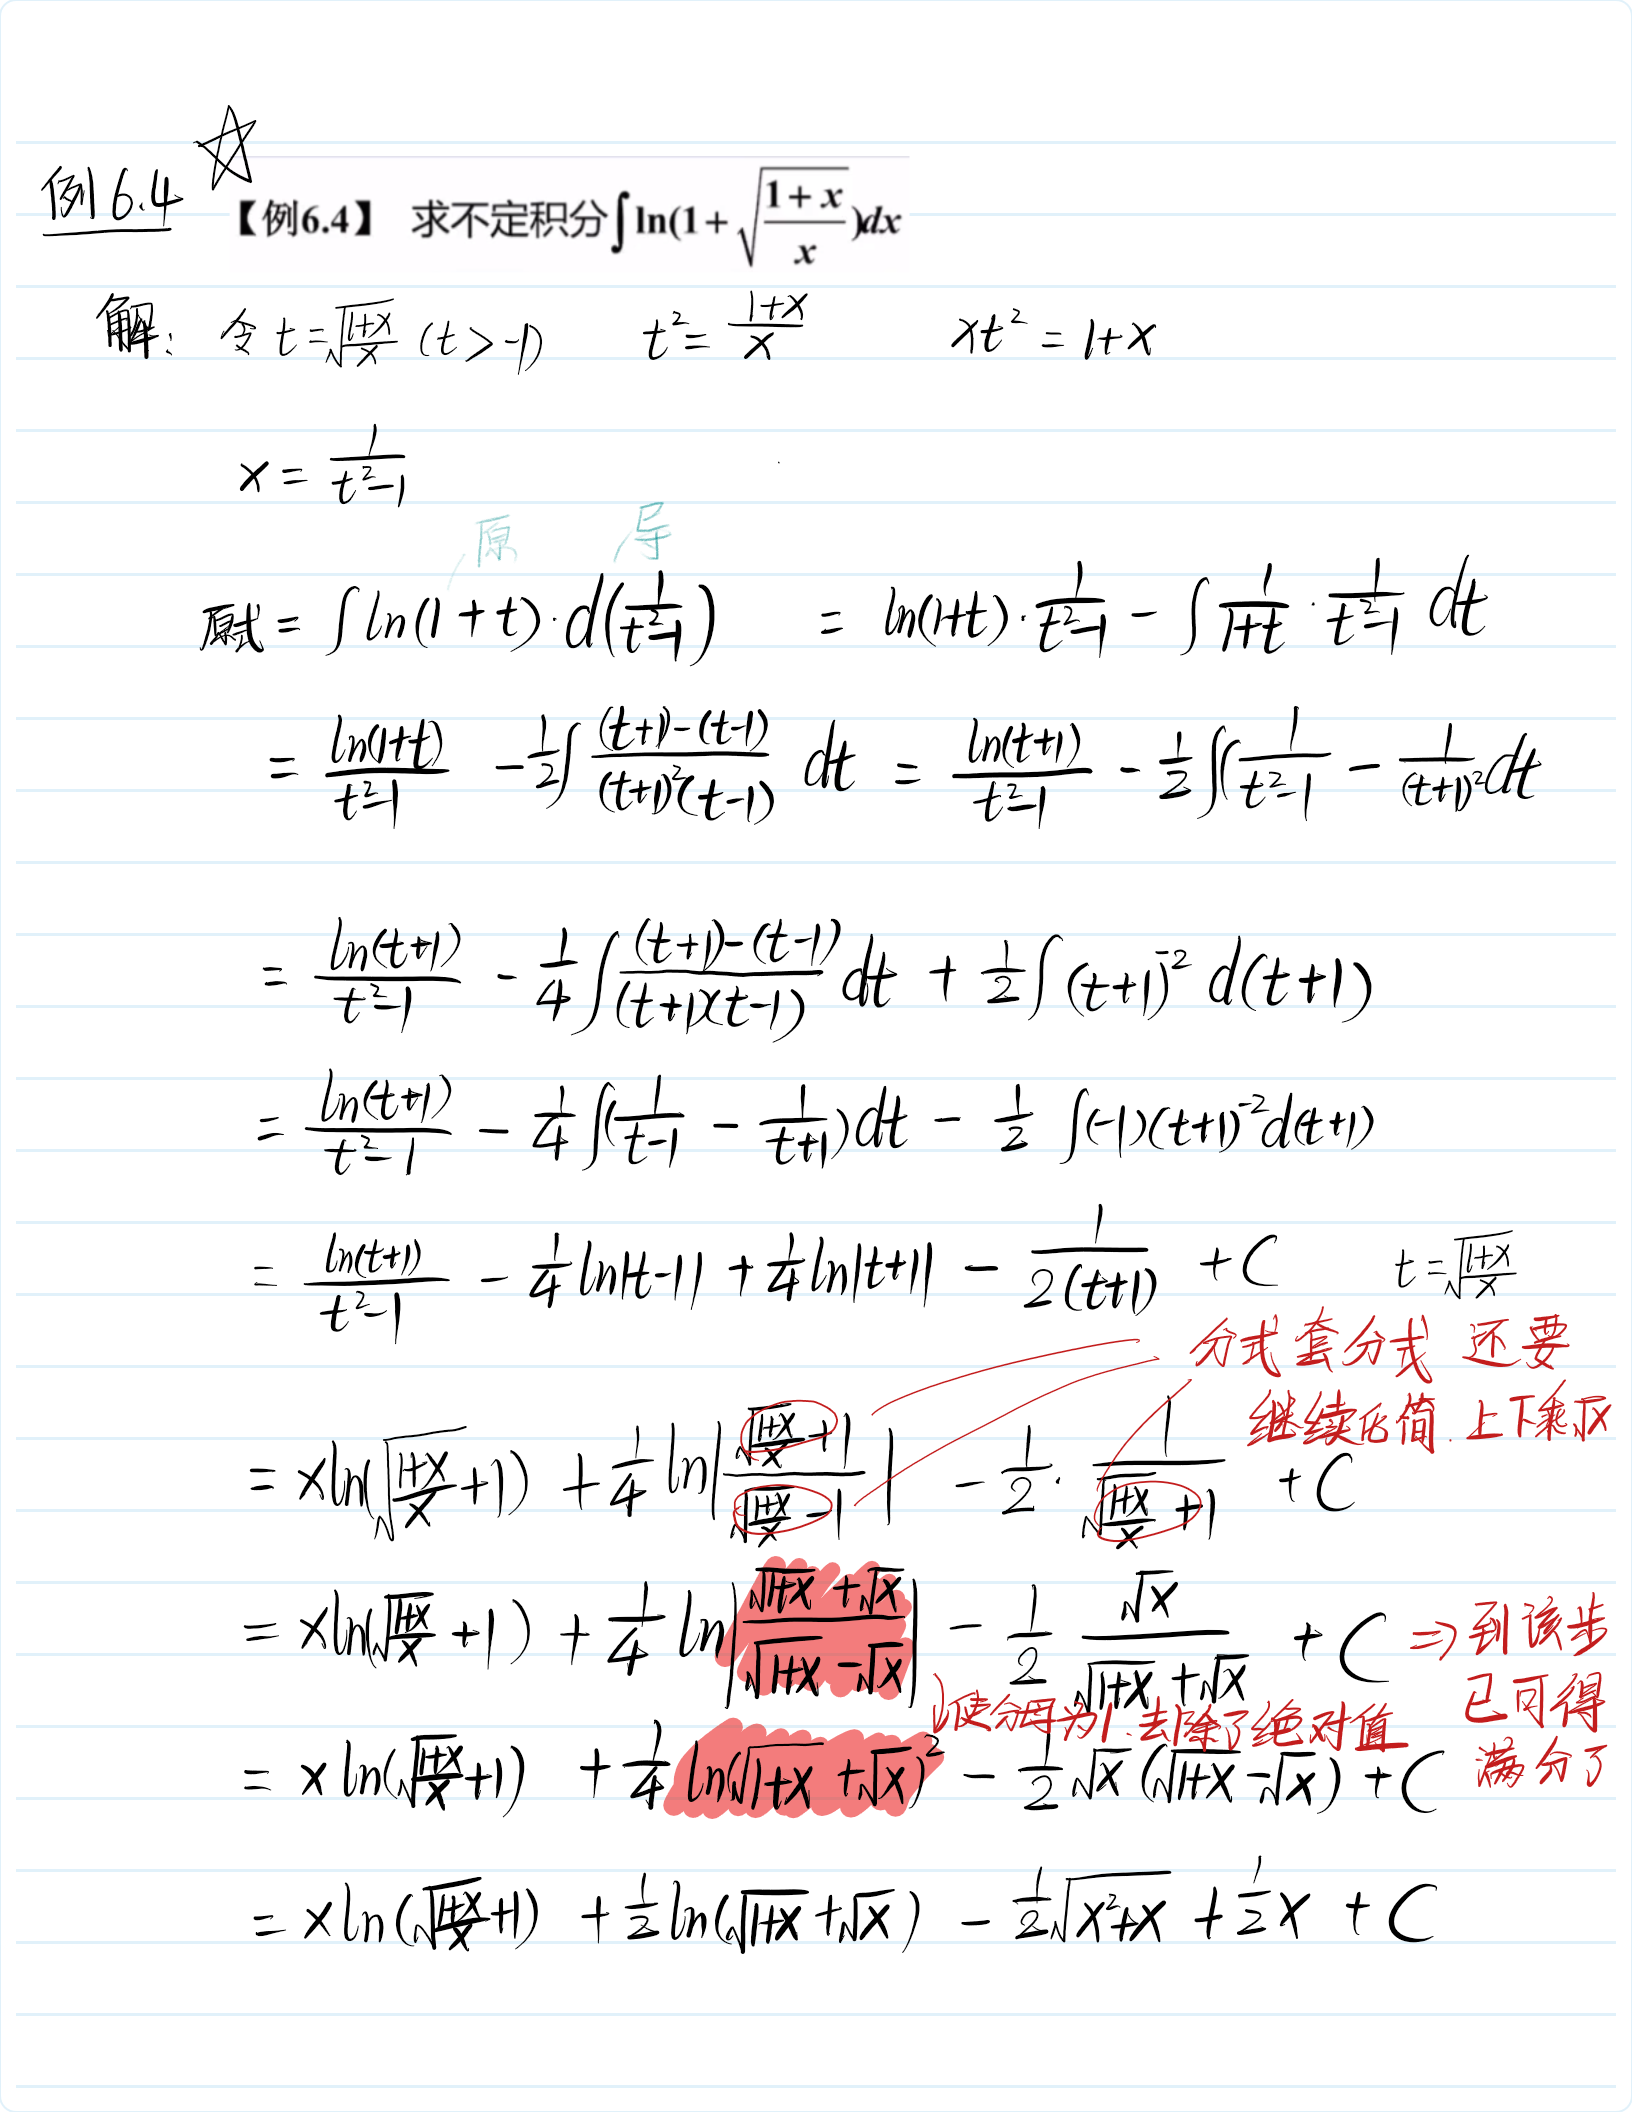 例6.4 ☆
【例6.4】 求不定积分∫ln(1+√((1+x)/x))dx
解: 令 t=√((1+x)/x) (t>-1) t²=(1+x)/x xt²=1+x
x=1/(t²-1)
原 导
原式 = ∫ln(1+t)·d(1/(t²-1)) = ln(1+t)·1/(t²-1) - ∫1/(1+t)·1/(t²-1) dt
= ln(1+t)/(t²-1) - 1/2∫((t+1)-(t-1))/((t+1)²(t-1)) dt = ln(t+1)/(t²-1) - 1/2∫(1/(t²-1) - 1/(t+1)²dt
= ln(t+1)/(t²-1) - 1/4∫((t+1)-(t-1))/((t+1)(t-1))dt + 1/2∫(t+1)⁻² d(t+1)
= ln(t+1)/(t²-1) - 1/4∫(1/(t-1) - 1/(t+1))dt - 1/2∫(-1)(t+1)⁻²d(t+1)
= ln(t+1)/(t²-1) - 1/4 ln|t-1| + 1/4 ln|t+1| - 1/(2(t+1)) + C t=√((1+x)/x)
分式套分式 还要
继续化简. 上下乘√x
= xln(√((1+x)/x)+1) + 1/4 ln|(√((1+x)/x)+1)/(√((1+x)/x)-1)| - 1/2·1/(√((1+x)/x)+1) + C
= xln(√((1+x)/x)+1) + 1/4 ln|(√(1+x)+√x)/(√(1+x)-√x)| - 1/2 √x/(√(1+x)+√x) + C ⇒ 到该步
已可得
满分了
↓使分母为1.去除了绝对值
= xln(√((1+x)/x)+1) + 1/4 ln(√(1+x)+√x)² - 1/2√x(√(1+x)-√x) + C
= xln(√((1+x)/x)+1) + 1/2 ln(√(1+x)+√x) - 1/2√(x²+x) + 1/2x + C